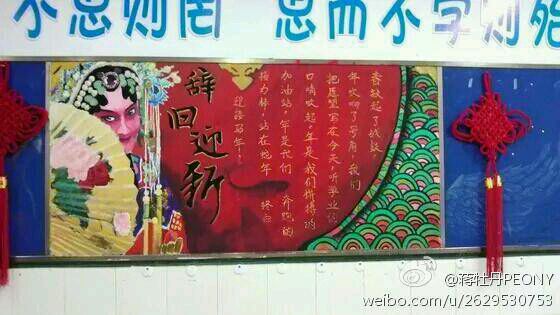 不思则罔 思而不学则殆
辞旧迎新
春敲起了战鼓，
年吹响了号角，我们
把愿望写在今天，听毕业的
口哨吹起，年是我们拼搏的
加油站，年是我们 奔跑的
接力棒，站在蛇年 终点
迎接马年！
@蒋牡丹PEONY
weibo.com/u/2629530753